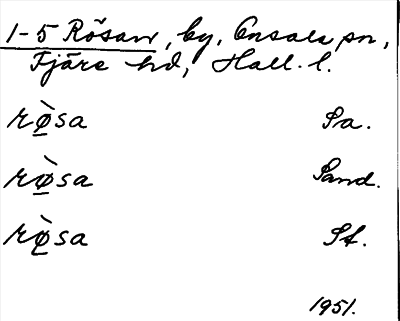 1-5 Rösan, by, Onsala sn,
Fjäre hd, Hall. l.
rø̀sa Sa.
rø̀sa Sand.
rø̀sa St.
1951.